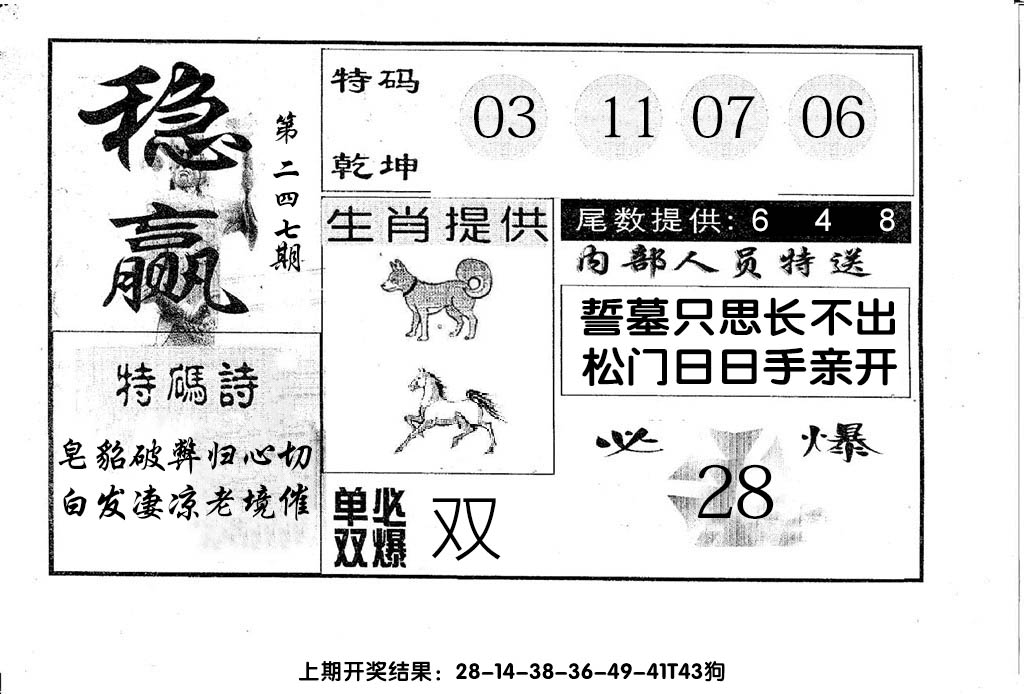 稳赢
第二四七期
特码诗
皂貂破弊归心切
白发凄凉老境催
特码
乾坤
03 11 07 06
生肖提供
单双必爆
双
尾数提供: 6 4 8
内部人员特送
誓墓只思长不出
松门日日手亲开
必爆
28
上期开奖结果：28-14-38-36-49-41T43狗